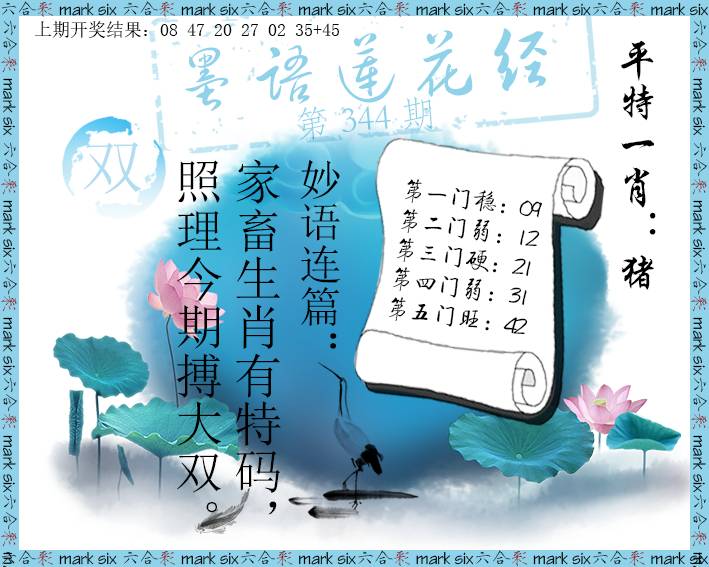 上期开奖结果：08 47 20 27 02 35+45
墨语莲花经
第 344 期
双
平特一肖：猪
妙语连篇：
家畜生肖有特码，
照理今期搏大双。
第一门稳：09
第二门弱：12
第三门硬：21
第四门弱：31
第五门旺：42
mark six 六合彩 mark six 六合彩 mark six 六合彩 mark six 六合彩 mark six 六合彩